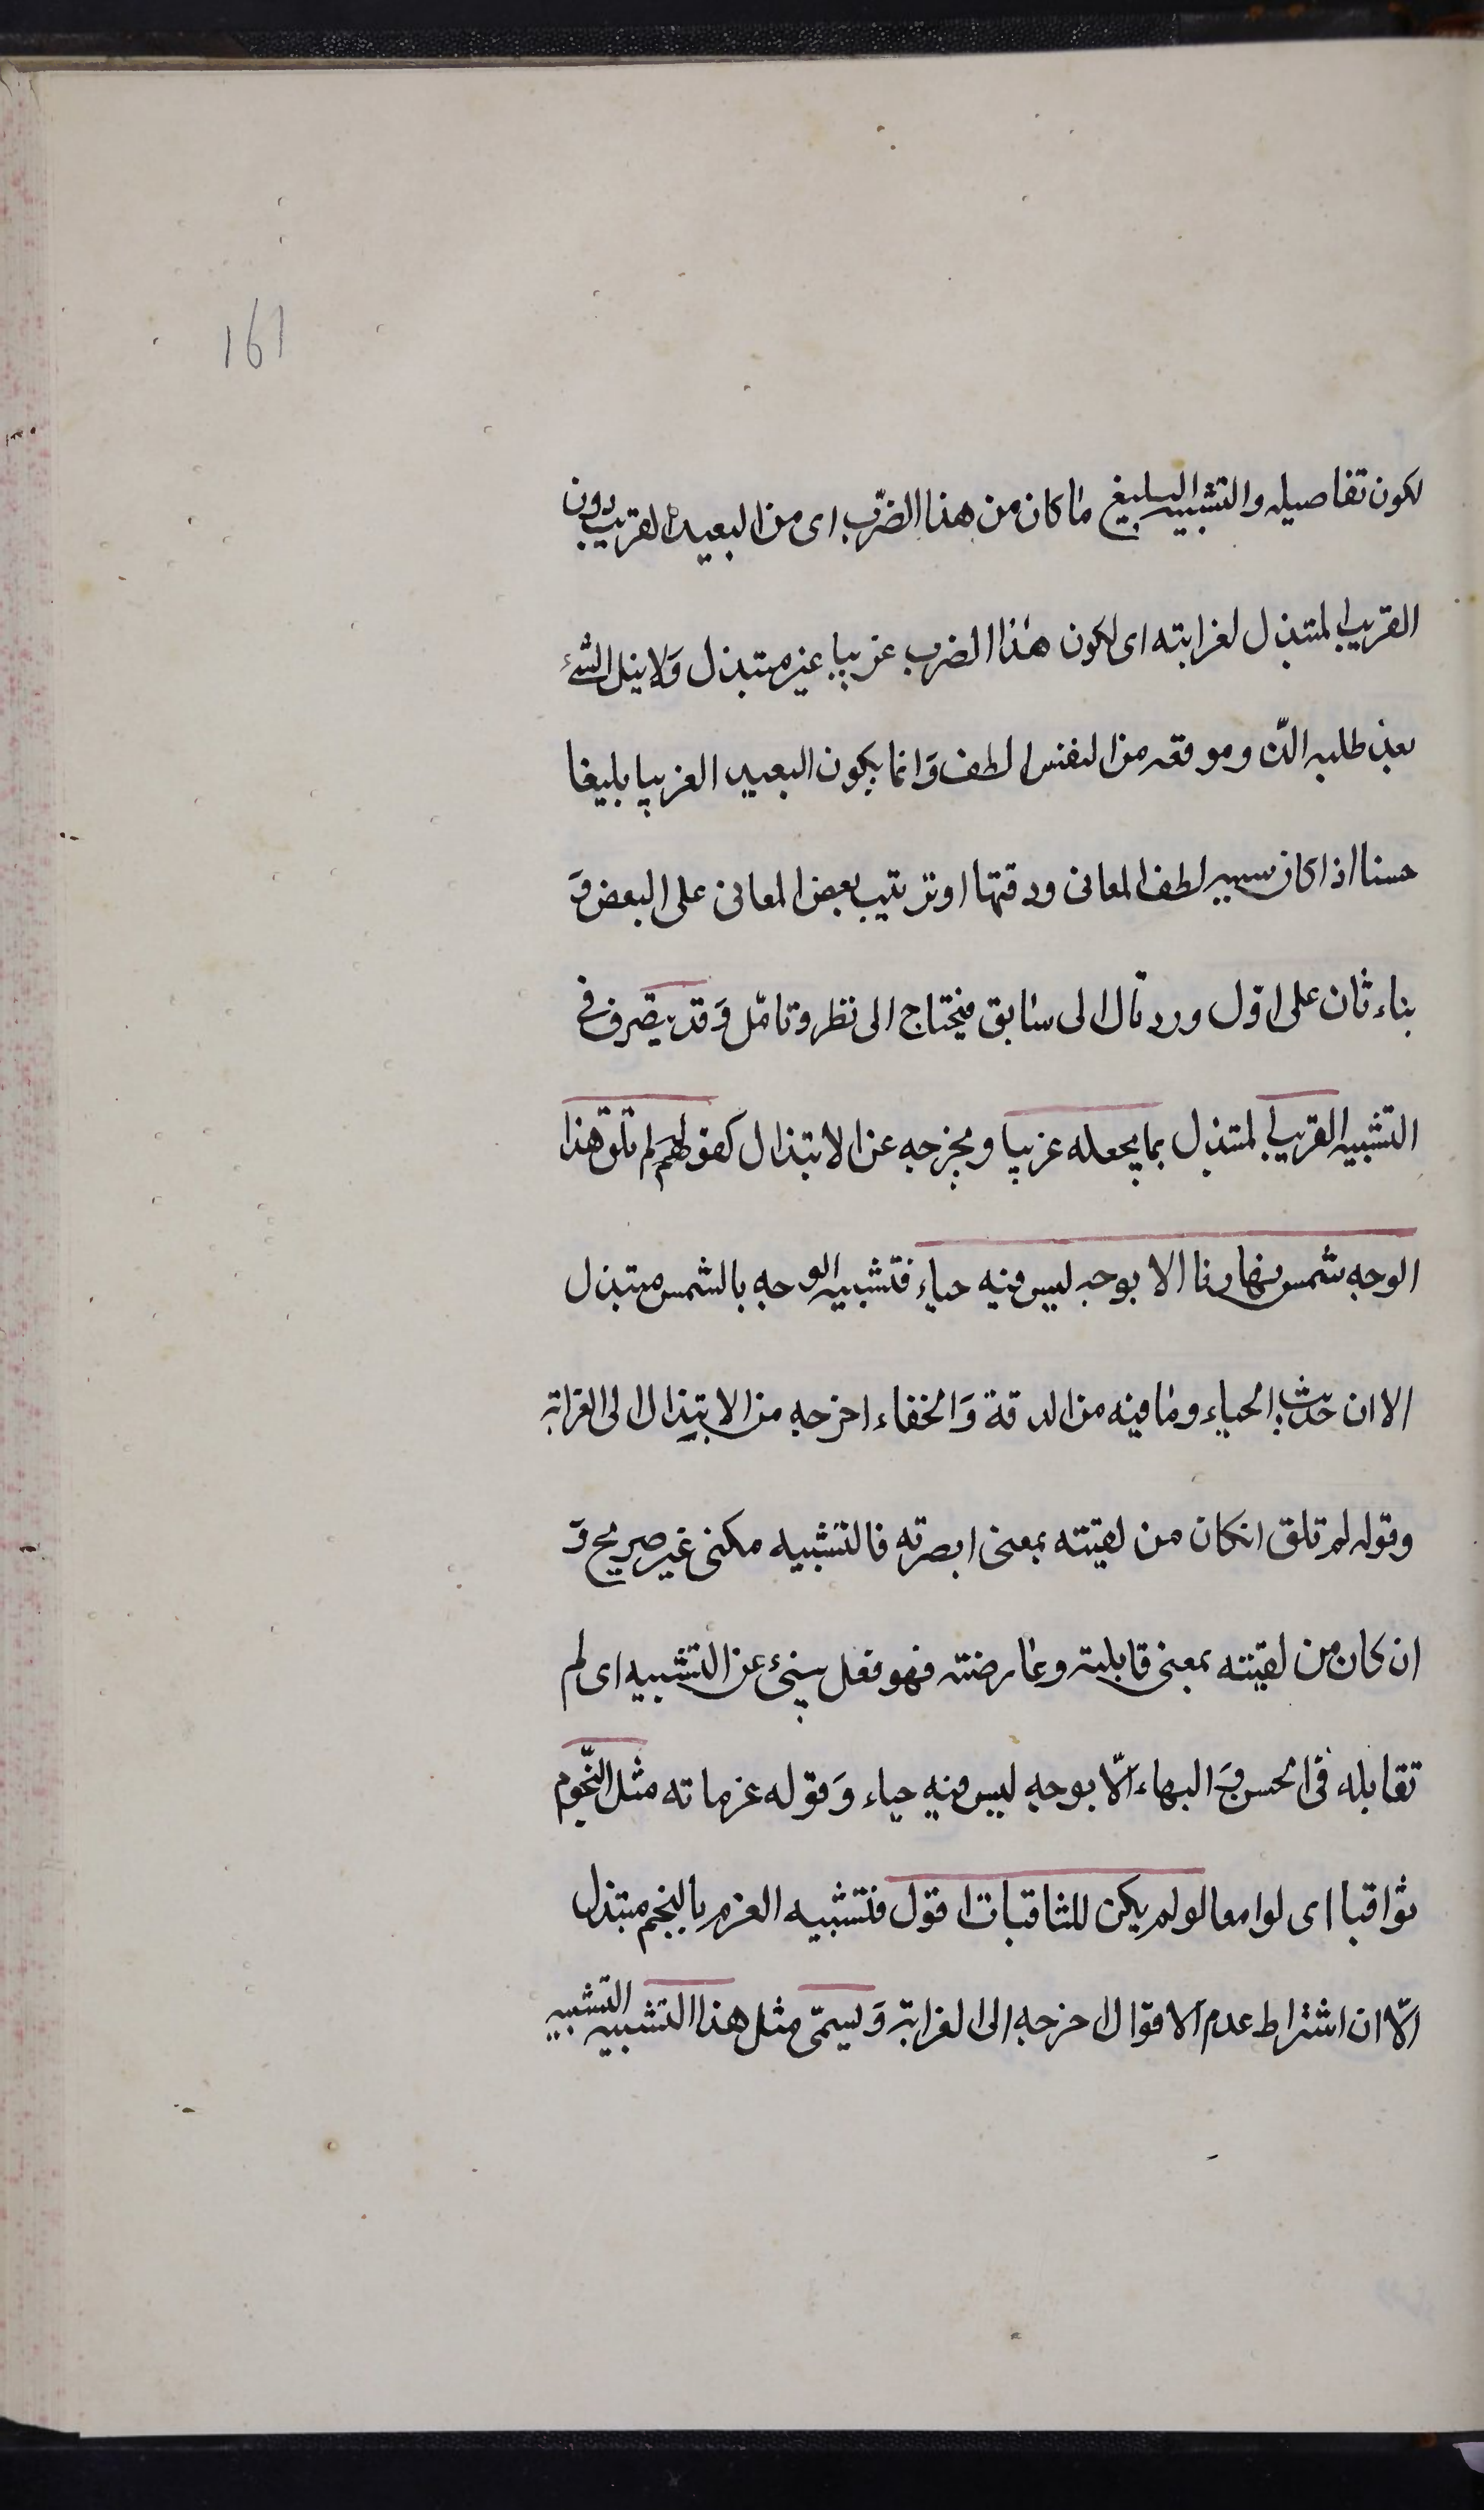 161
لكون تفاصيله والتشبيه البليغ ما كان من هذا الضرّب اى من البعيد القريب دون
القريب المتبذل لغرابته اى لكون هذا الضرب غريبا غير مبتذل وَلا نيل الشئ
بعد طلبه الذّ وموقعه من النفس الطف وَانما يكون البعيد الغريبا بليغا
حسنا اذا كان سببه لطف المعانى ودقتها او ترتيب بعض المعانى على البعض وَ
بناء ثان على اوّل ورد تال الى سابق فيحتاج الى نظر وتامّل وَقد يتصّرف فى
التشبيه القريب المتبذل بما يجعله غريبا ويخرجه عن الابتذال كقولهم لم تلق هذا
الوجه شمس نهارنا الا بوجه ليس فيه حياء فتشبيه الوجه بالشمس مبتذل
الا ان حدّيث الحياء وما فيه من الدقة وَالخفاء اخرجه من الابتذال الى الغرابة
وقوله لم تلق ان كان من لقيته بمعنى ابصرته فالتشبيه مكنى غير صريح وَ
ان كان من لقيته بمعنى قابلته وعارضته فهو فعل ينبئ عن التشبيه اى لم
تقابله فى الحسن وَ البهاء الّا بوجه ليس فيه حياء وَقوله عزماته مثل النّجوم
ثواقبا اى لوامعا لو لم يكن للثاقبات افول فتشبيه العزم بالنجم مبتذل
الّا ان اشتراط عدم الافوال اخرجه الى الغرابة وَيسمّى مثل هذا التشبيه التشبيه